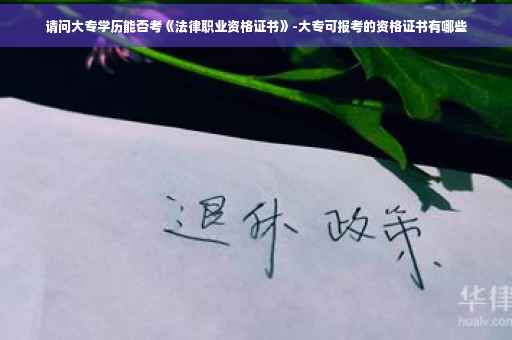 请问大专学历能否考《法律职业资格证书》-大专可报考的资格证书有哪些
退休 政策
华律
hualv.com